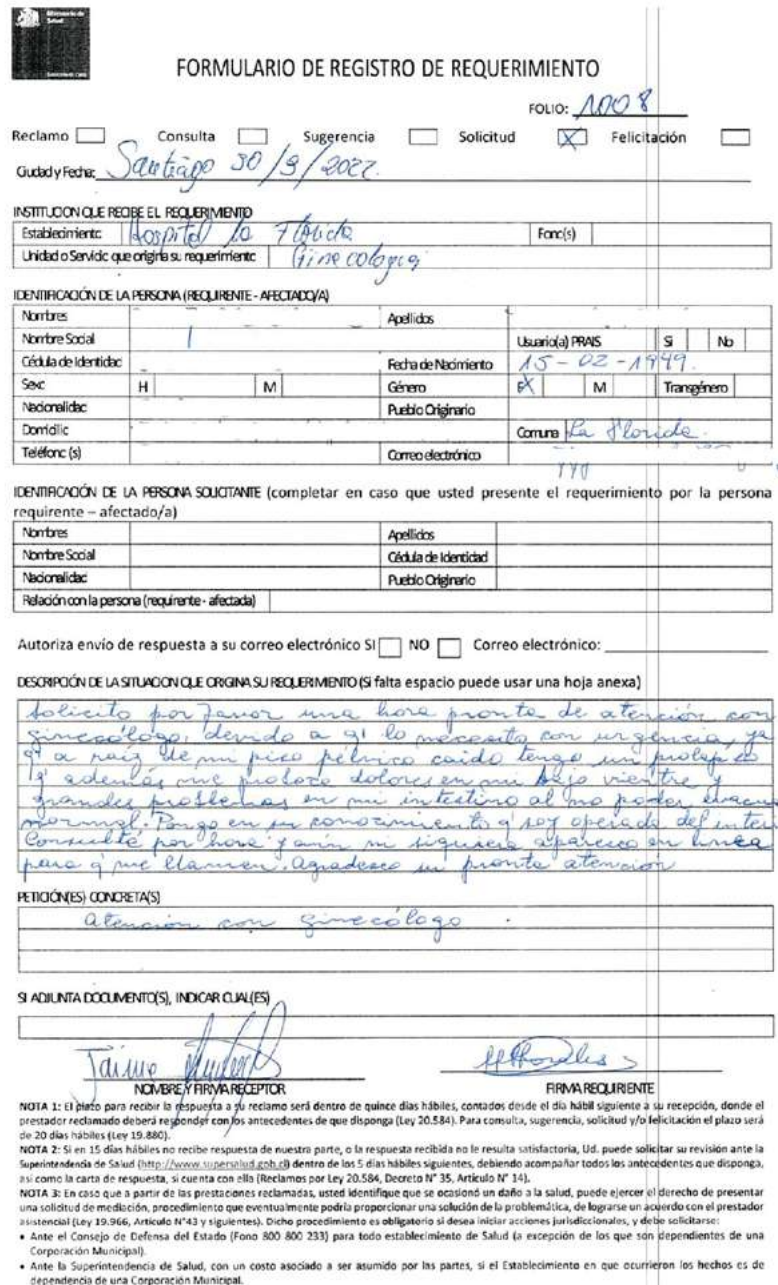 Ministerio de
Salud
FORMULARIO DE REGISTRO DE REQUERIMIENTO
FOLIO: 1008
Reclamo Consulta Sugerencia Solicitud X Felicitación
Ciudad y Fecha: Santiago 30/9/2022.
INSTITUCION QUE RECIBE EL REQUERIMIENTO
Establecimiento Hospital La Florida Fono(s)
Unidad o Servicio que origina su requerimiento Ginecologia
IDENTIFICACIÓN DE LA PERSONA (REQUIRENTE - AFECTADO/A)
Nombres Apellidos
Nombre Social Usuario(a) PRAIS Si No
Cédula de Identidad Fecha de Nacimiento 15-02-1949.
Sexo H M Género F X M Transgénero
Nacionalidad Pueblo Originario
Domicilio Comuna La Florida.
Teléfono (s) Correo electrónico
IDENTIFICACIÓN DE LA PERSONA SOLICITANTE (completar en caso que usted presente el requerimiento por la persona
requirente – afectado/a)
Nombres Apellidos
Nombre Social Cédula de Identidad
Nacionalidad Pueblo Originario
Relación con la persona (requirente - afectada)
Autoriza envío de respuesta a su correo electrónico SI NO Correo electrónico:
DESCRIPCIÓN DE LA SITUACION QUE ORIGINA SU REQUERIMIENTO (Si falta espacio puede usar una hoja anexa)
Solicito por favor una hora pronta de atención con
ginecólogo, devido a q' lo necesito con urgencia, ya
q' a raíz de mi piso pélvico caido tengo un prolapso
q' además me proboca dolores en mi bajo vientre y
grandes problemas en mi intestino al no poder evacua
normal. Pongo en su conocimiento q' soy operada del inte
Consulté por hora y aún ni siquiera aparesco en linea
para q' me llamen. Agradesco su pronta atención
PETICIÓN(ES) CONCRETA(S)
Atención con ginecólogo.
SI ADJUNTA DOCUMENTO(S), INDICAR CUAL(ES)
Jaime
HMorales
NOMBRE Y FIRMA RECEPTOR FIRMA REQUIRIENTE
NOTA 1: El plazo para recibir la respuesta a su reclamo será dentro de quince días hábiles, contados desde el día hábil siguiente a su recepción, donde el
prestador reclamado deberá responder con los antecedentes de que disponga (Ley 20.584). Para consulta, sugerencia, solicitud y/o felicitación el plazo será
de 20 días hábiles (Ley 19.880).
NOTA 2: Si en 15 días hábiles no recibe respuesta de nuestra parte, o la respuesta recibida no le resulta satisfactoria, Ud. puede solicitar su revisión ante la
Superintendencia de Salud (http://www.supersalud.gob.cl) dentro de los 5 días hábiles siguientes, debiendo acompañar todos los antecedentes que disponga,
así como la carta de respuesta, si cuenta con ella (Reclamos por Ley 20.584, Decreto N° 35, Artículo N° 14).
NOTA 3: En caso que a partir de las prestaciones reclamadas, usted identifique que se ocasionó un daño a la salud, puede ejercer el derecho de presentar
una solicitud de mediación, procedimiento que eventualmente podría proporcionar una solución de la problemática, de lograrse un acuerdo con el prestador
asistencial (Ley 19.966, Artículo N°43 y siguientes). Dicho procedimiento es obligatorio si desea iniciar acciones jurisdiccionales, y debe solicitarse:
• Ante el Consejo de Defensa del Estado (Fono 800 800 233) para todo establecimiento de Salud (a excepción de los que son dependientes de una
Corporación Municipal).
• Ante la Superintendencia de Salud, con un costo asociado a ser asumido por las partes, si el Establecimiento en que ocurrieron los hechos es de
dependencia de una Corporación Municipal.